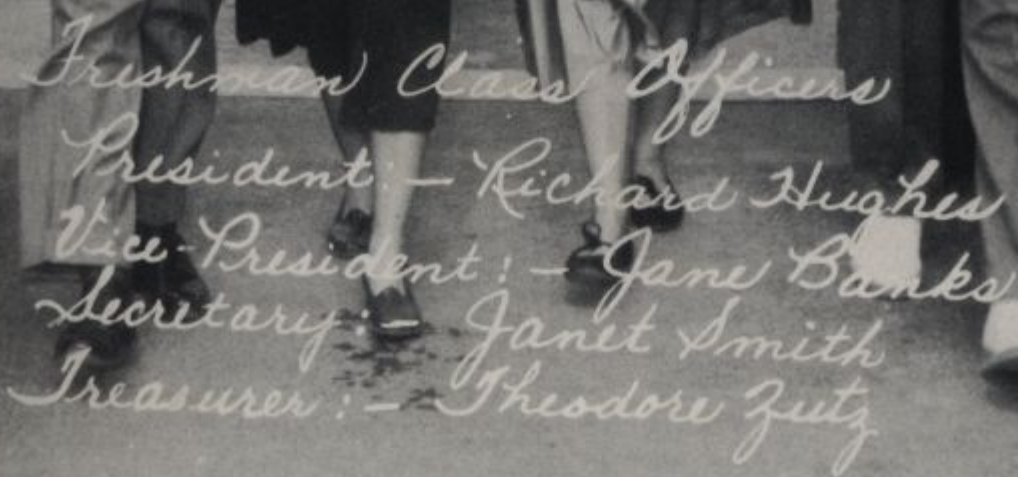 Freshman Class Officers
President:— Richard Hughes
Vice-President:— Jane Banks
Secretary:— Janet Smith
Treasurer:— Theodore Zutz